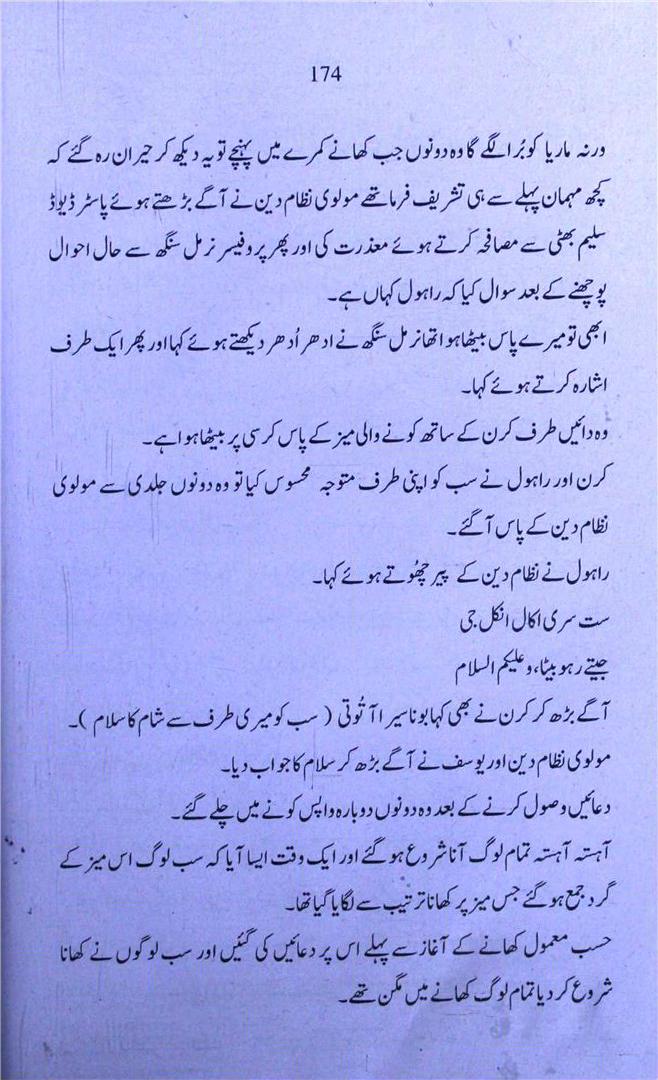 174
ورنہ ماریا کو بُرا لگے گا وہ دونوں جب کھانے کمرے میں پہنچے تو یہ دیکھ کر حیران رہ گئے کہ
کچھ مہمان پہلے سے ہی تشریف فرما تھے مولوی نظام دین نے آگے بڑھتے ہوئے پاسٹر ڈیوڈ
سلیم بھٹی سے مصافحہ کرتے ہوئے معذرت کی اور پھر پروفیسر نرمل سنگھ سے حال احوال
پوچھنے کے بعد سوال کیا کہ راہول کہاں ہے۔
ابھی تو میرے پاس بیٹھا ہوا تھا نرمل سنگھ نے ادھر اُدھر دیکھتے ہوئے کہا اور پھر ایک طرف
اشارہ کرتے ہوئے کہا۔
وہ دائیں طرف کرن کے ساتھ کونے والی میز کے پاس کرسی پر بیٹھا ہوا ہے۔
کرن اور راہول نے سب کو اپنی طرف متوجہ محسوس کیا تو وہ دونوں جلدی سے مولوی
نظام دین کے پاس آگئے۔
راہول نے نظام دین کے پیر چھُوتے ہوئے کہا۔
ست سری اکال انکل جی
جیتے رہو بیٹا، وعلیکم السلام
آگے بڑھ کر کرن نے بھی کہا بونا سیرا آ تُوتی (سب کو میری طرف سے شام کا سلام)۔
مولوی نظام دین اور یوسف نے آگے بڑھ کر سلام کا جواب دیا۔
دعائیں وصول کرنے کے بعد وہ دونوں دوبارہ واپس کونے میں چلے گئے۔
آہستہ آہستہ تمام لوگ آنا شروع ہو گئے اور ایک وقت ایسا آیا کہ سب لوگ اس میز کے
گرد جمع ہو گئے جس میز پر کھانا ترتیب سے لگایا گیا تھا۔
حسب معمول کھانے کے آغاز سے پہلے اس پر دعائیں کی گئیں اور سب لوگوں نے کھانا
شروع کر دیا تمام لوگ کھانے میں مگن تھے۔